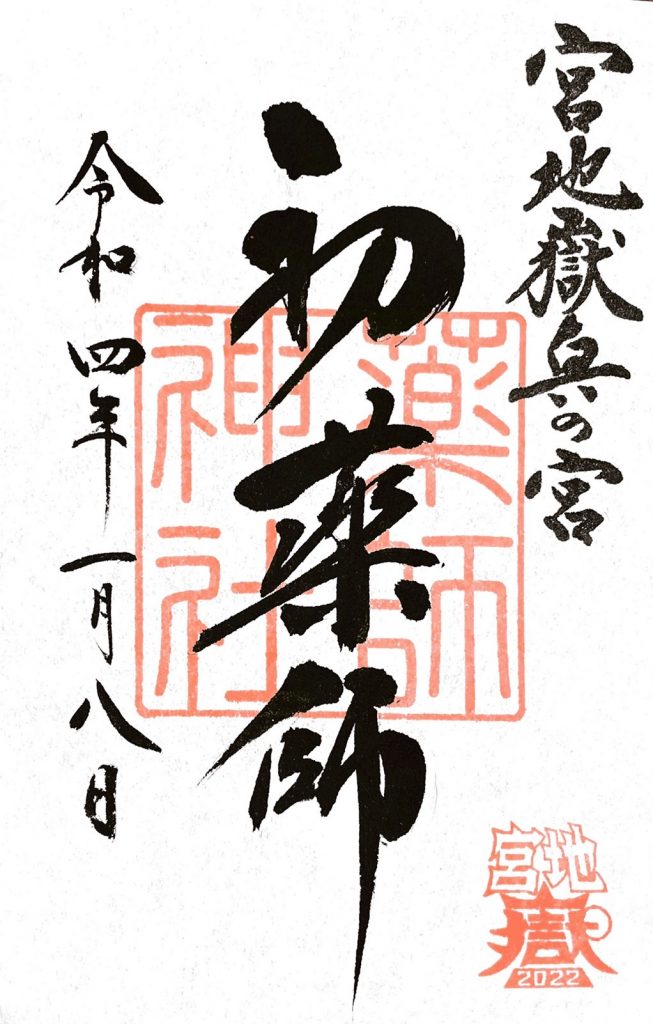 宮地嶽兵の宮
初薬師
令和四年一月八日
薬師
神社
宮地
嶽
2022